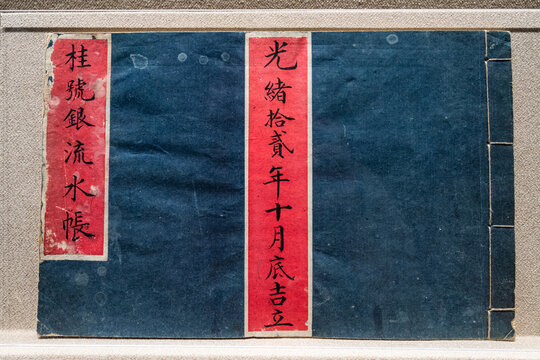 光緒拾貳年十月底吉立
桂號銀流水帳